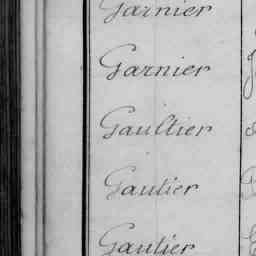 Garnier
Garnier
Gaultier
Gautier
Gautier